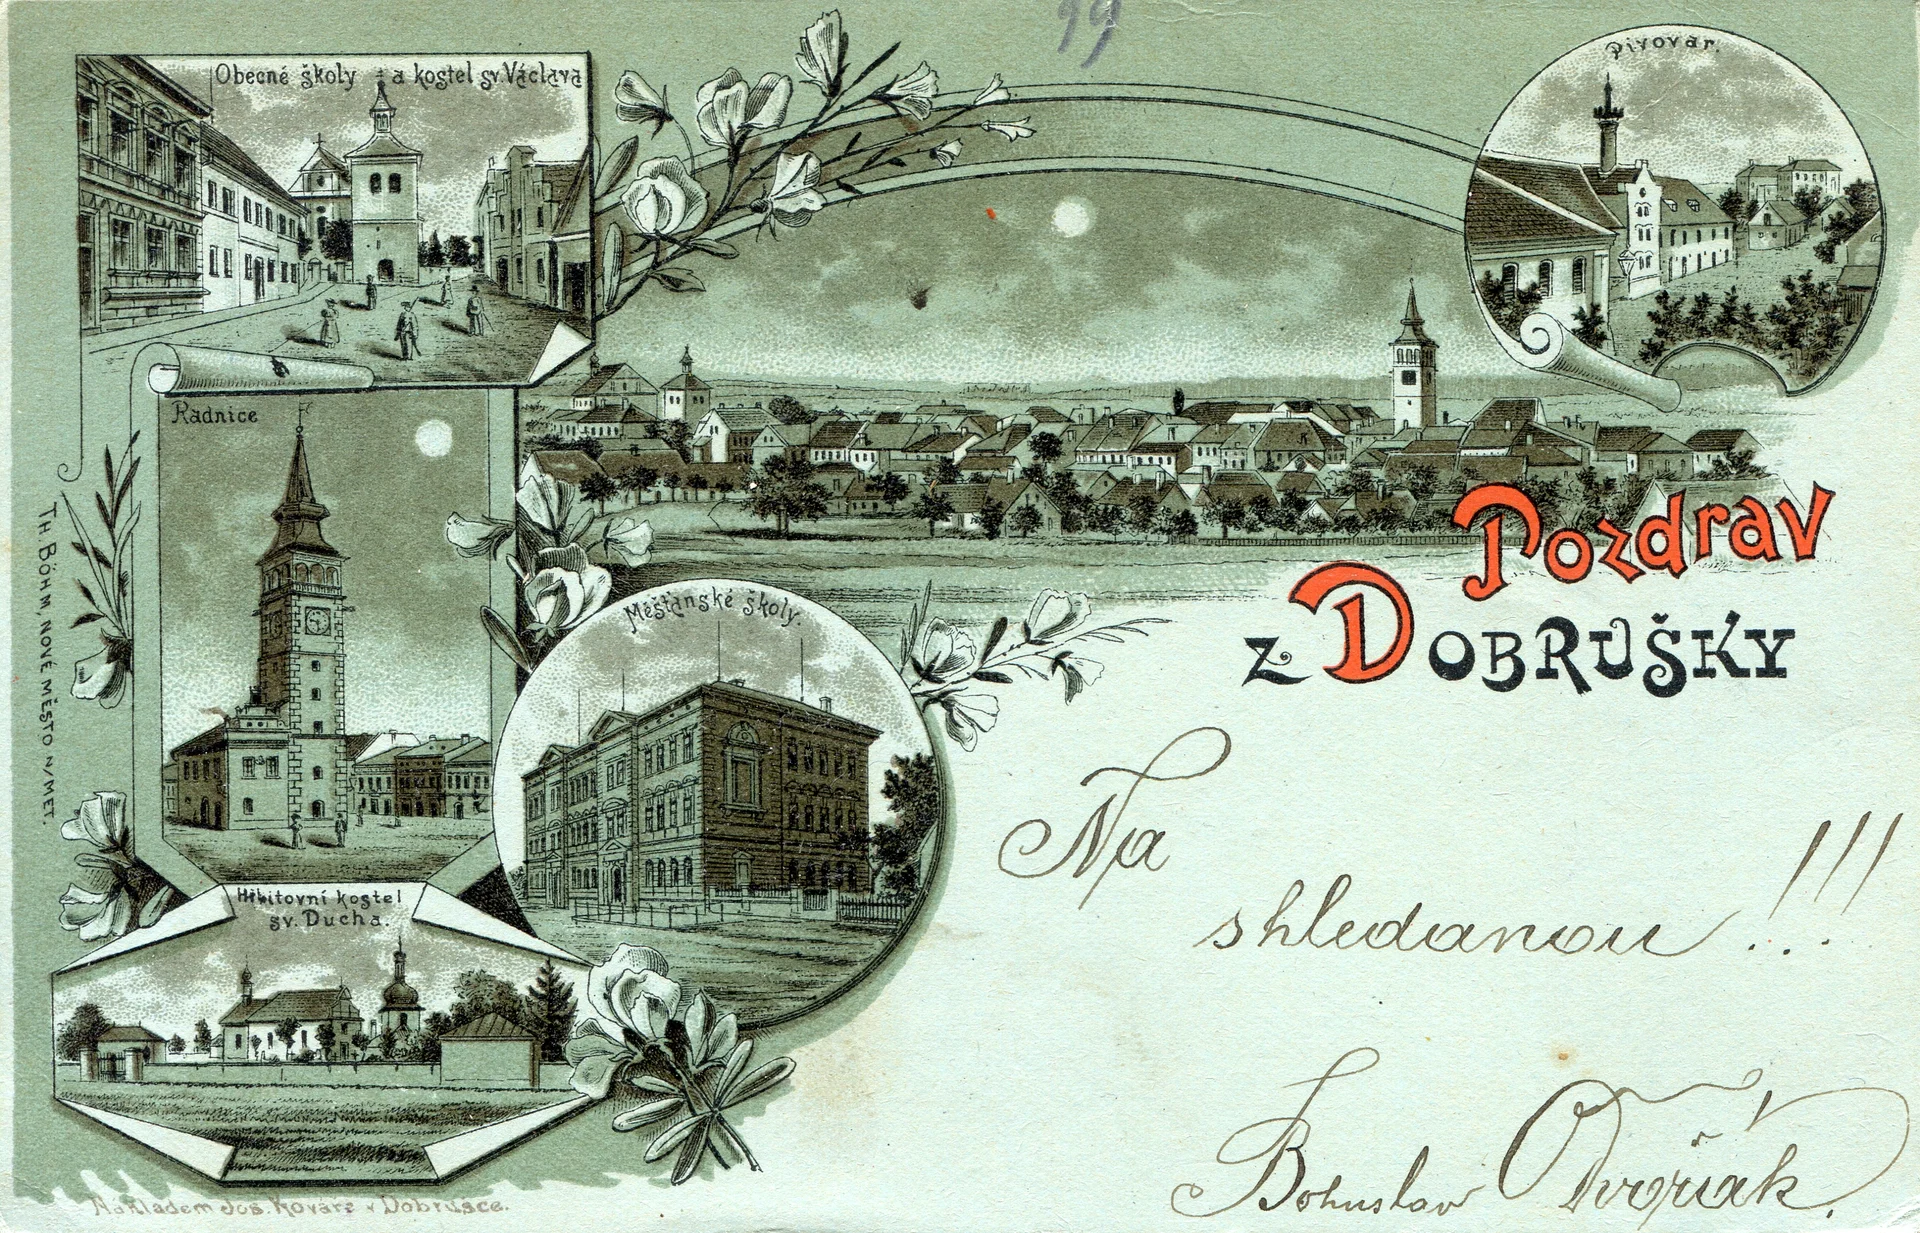 99
Obecné školy a kostel sv. Václava
Pivovar.
Radnice
Pozdrav
z Dobrušky
Měšťanské školy.
TH. BÖHM, NOVÉ MĚSTO N/MET.
Na
shledanou!!!
Hřbitovní kostel
sv. Ducha.
Bohuslav Dvořák.
Nákladem Jos. Kováře v Dobrušce.